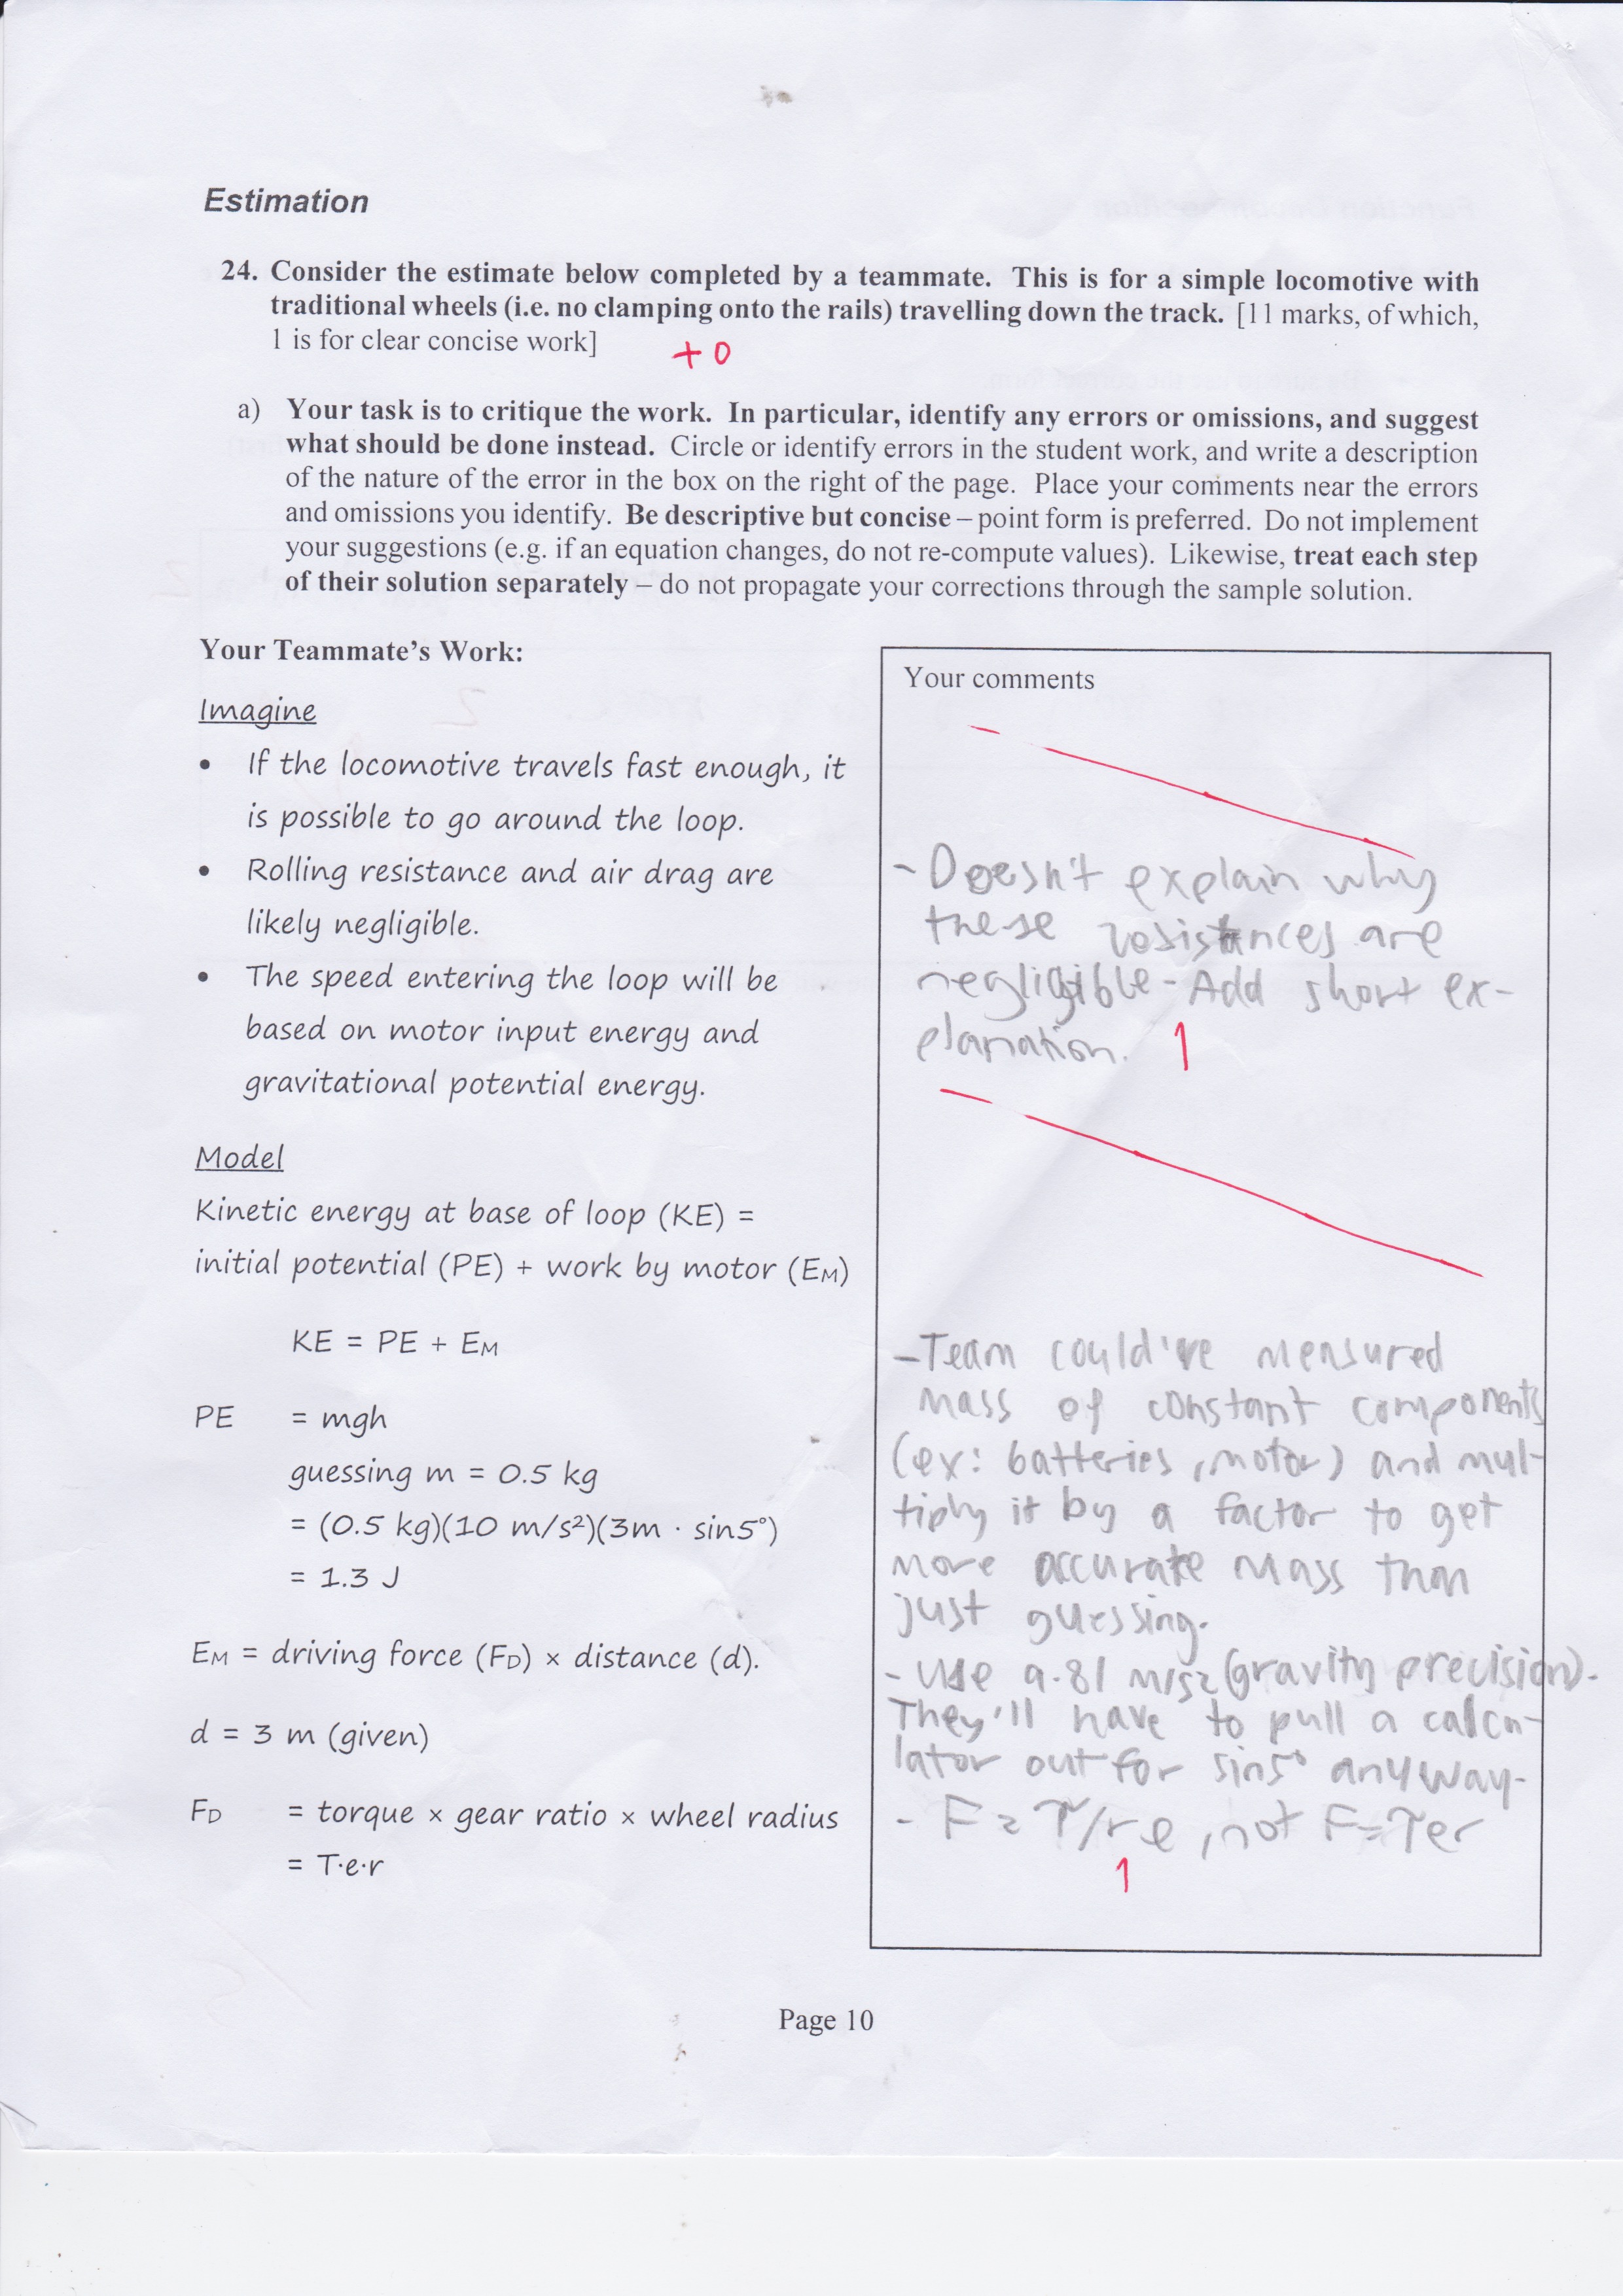 Estimation
24. Consider the estimate below completed by a teammate. This is for a simple locomotive with
traditional wheels (i.e. no clamping onto the rails) travelling down the track. [11 marks, of which,
1 is for clear concise work]
+0
a) Your task is to critique the work. In particular, identify any errors or omissions, and suggest
what should be done instead. Circle or identify errors in the student work, and write a description
of the nature of the error in the box on the right of the page. Place your comments near the errors
and omissions you identify. Be descriptive but concise – point form is preferred. Do not implement
your suggestions (e.g. if an equation changes, do not re-compute values). Likewise, treat each step
of their solution separately – do not propagate your corrections through the sample solution.
Your Teammate's Work:
Imagine
• If the locomotive travels fast enough, it
is possible to go around the loop.
• Rolling resistance and air drag are
likely negligible.
• The speed entering the loop will be
based on motor input energy and
gravitational potential energy.
Model
Kinetic energy at base of loop (KE) =
initial potential (PE) + work by motor (EM)
KE = PE + EM
PE = mgh
guessing m = 0.5 kg
= (0.5 kg)(10 m/s²)(3m · sin5°)
= 1.3 J
EM = driving force (FD) × distance (d).
d = 3 m (given)
FD = torque × gear ratio × wheel radius
= T·e·r
Your comments
- Doesn't explain why
these resistances are
negligible - Add short ex-
planation.
1
- Team could've measured
mass of constant components
(ex: batteries, motor) and mul-
tiply it by a factor to get
more accurate mass than
just guessing.
- Use 9.81 m/s2 (gravity precision).
They'll have to pull a calcu-
lator out for sin5° anyway.
- F = T/re, not F=Ter
1
Page 10